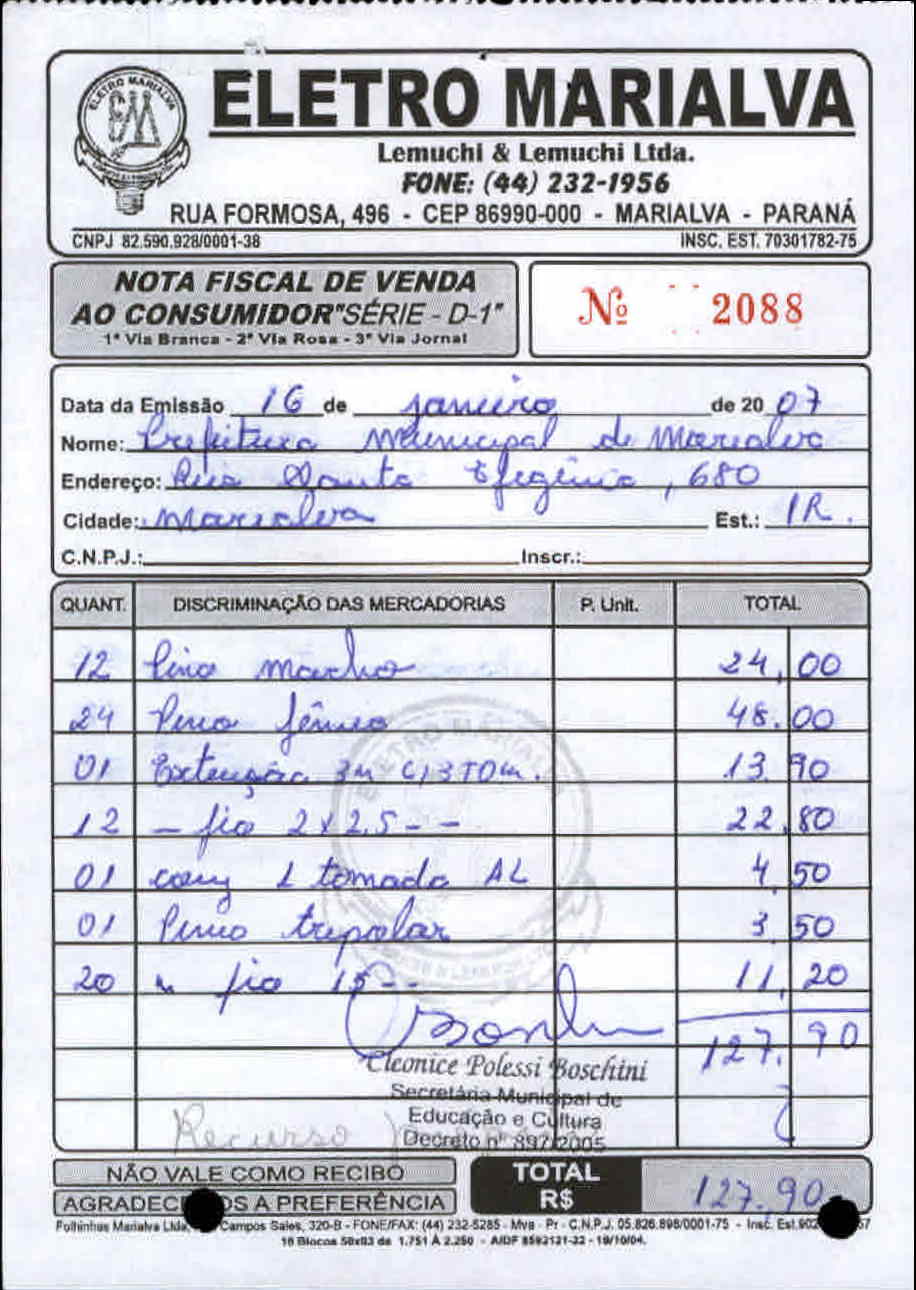 ELETRO MARIALVA
Lemuchi & Lemuchi Ltda.
FONE: (44) 232-1956
RUA FORMOSA, 496 - CEP 86990-000 - MARIALVA - PARANÁ
CNPJ 82.590.928/0001-38 INSC. EST. 70301782-75
NOTA FISCAL DE VENDA
AO CONSUMIDOR "SÉRIE - D-1"
1ª Via Branca - 2ª Via Rosa - 3ª Via Jornal
Nº 2088
Data da Emissão 16 de janeiro de 20 07
Nome: Prefeitura Municipal de Marialva
Endereço: Rua Santa Efigênia, 680
Cidade: Marialva Est.: PR.
C.N.P.J.: Inscr.:
QUANT. DISCRIMINAÇÃO DAS MERCADORIAS P. Unit. TOTAL
12 Pino macho 24,00
24 Pino fêmea 48.00
01 Extenção 3m c/3 TOM. 13 90
12 - fio 2x2,5 - - 22,80
01 conj 1 tomada AL 4,50
01 Pino tripolar 3,50
20 " fio 15 - - 11,20
127,90
Cleonice Polessi Boschini
Secretária Municipal de
Educação e Cultura
Decreto nº 897/2005
Recurso
NÃO VALE COMO RECIBO
AGRADECEMOS A PREFERÊNCIA
TOTAL
R$ 127,90
Folhinhas Marialva Ltda. Campos Sales, 320-B - FONE/FAX: (44) 232-5285 - Mva - Pr - C.N.P.J. 05.826.898/0001-75 - Insc. Est.
10 Blocos 50x03 de 1.751 À 2.250 - AIDF 8593121-22 - 19/10/04.